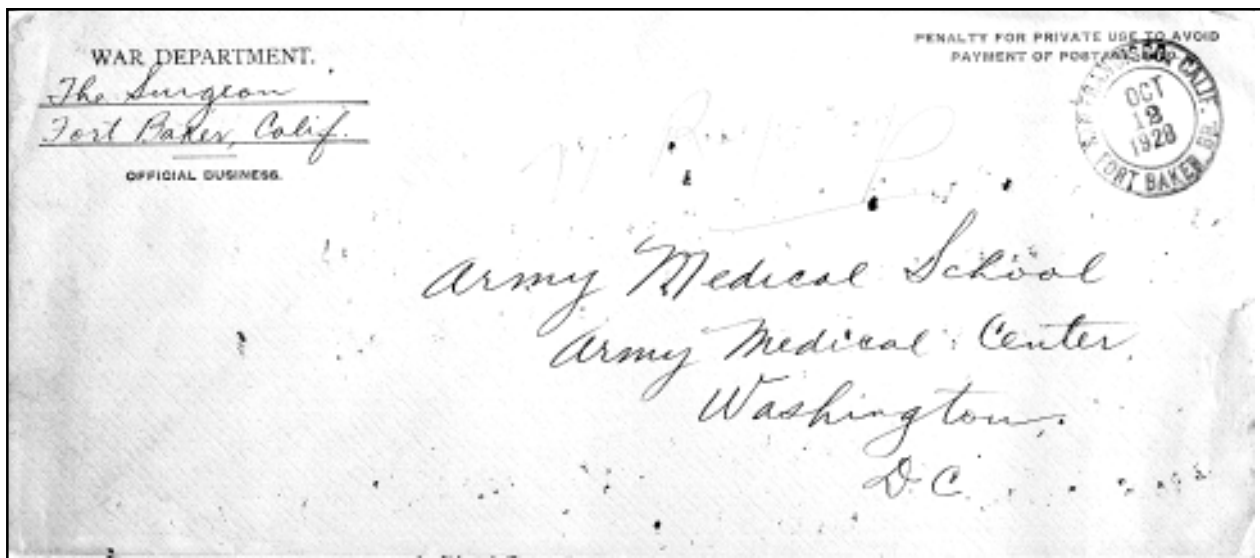 WAR DEPARTMENT.
The Surgeon
Fort Baker, Calif.
OFFICIAL BUSINESS.
PENALTY FOR PRIVATE USE TO AVOID
PAYMENT OF
CALIF.
OCT
1928
FORT BAKER BR.
Army Medical School
Army Medical Center,
Washington,
D.C.